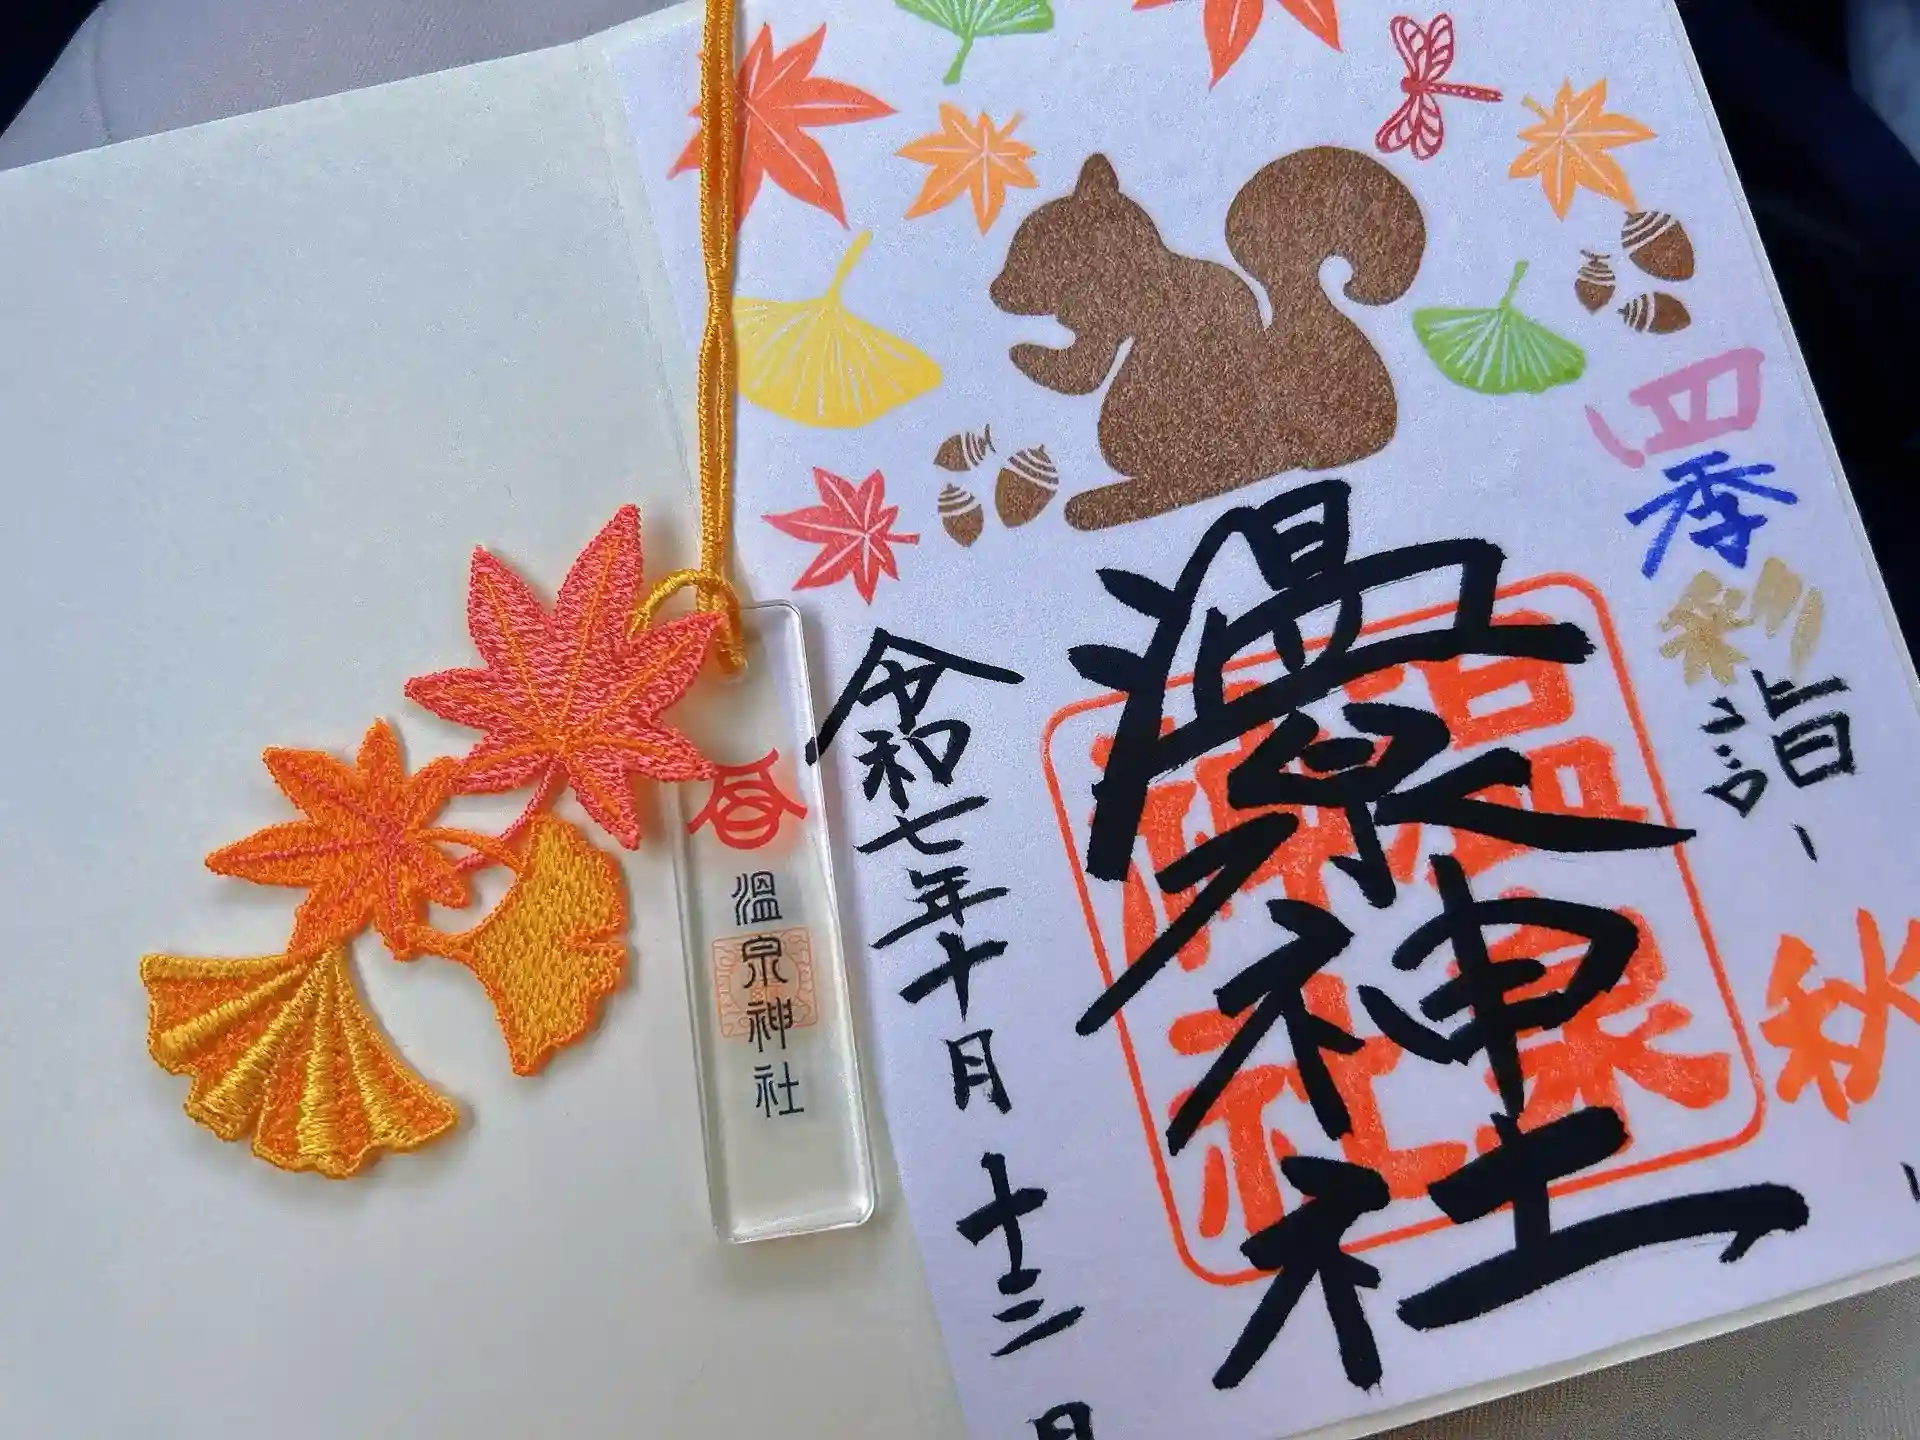 四季彩詣
秋
温泉神社
温泉
神社
令和七年十月十三日
溫泉神社